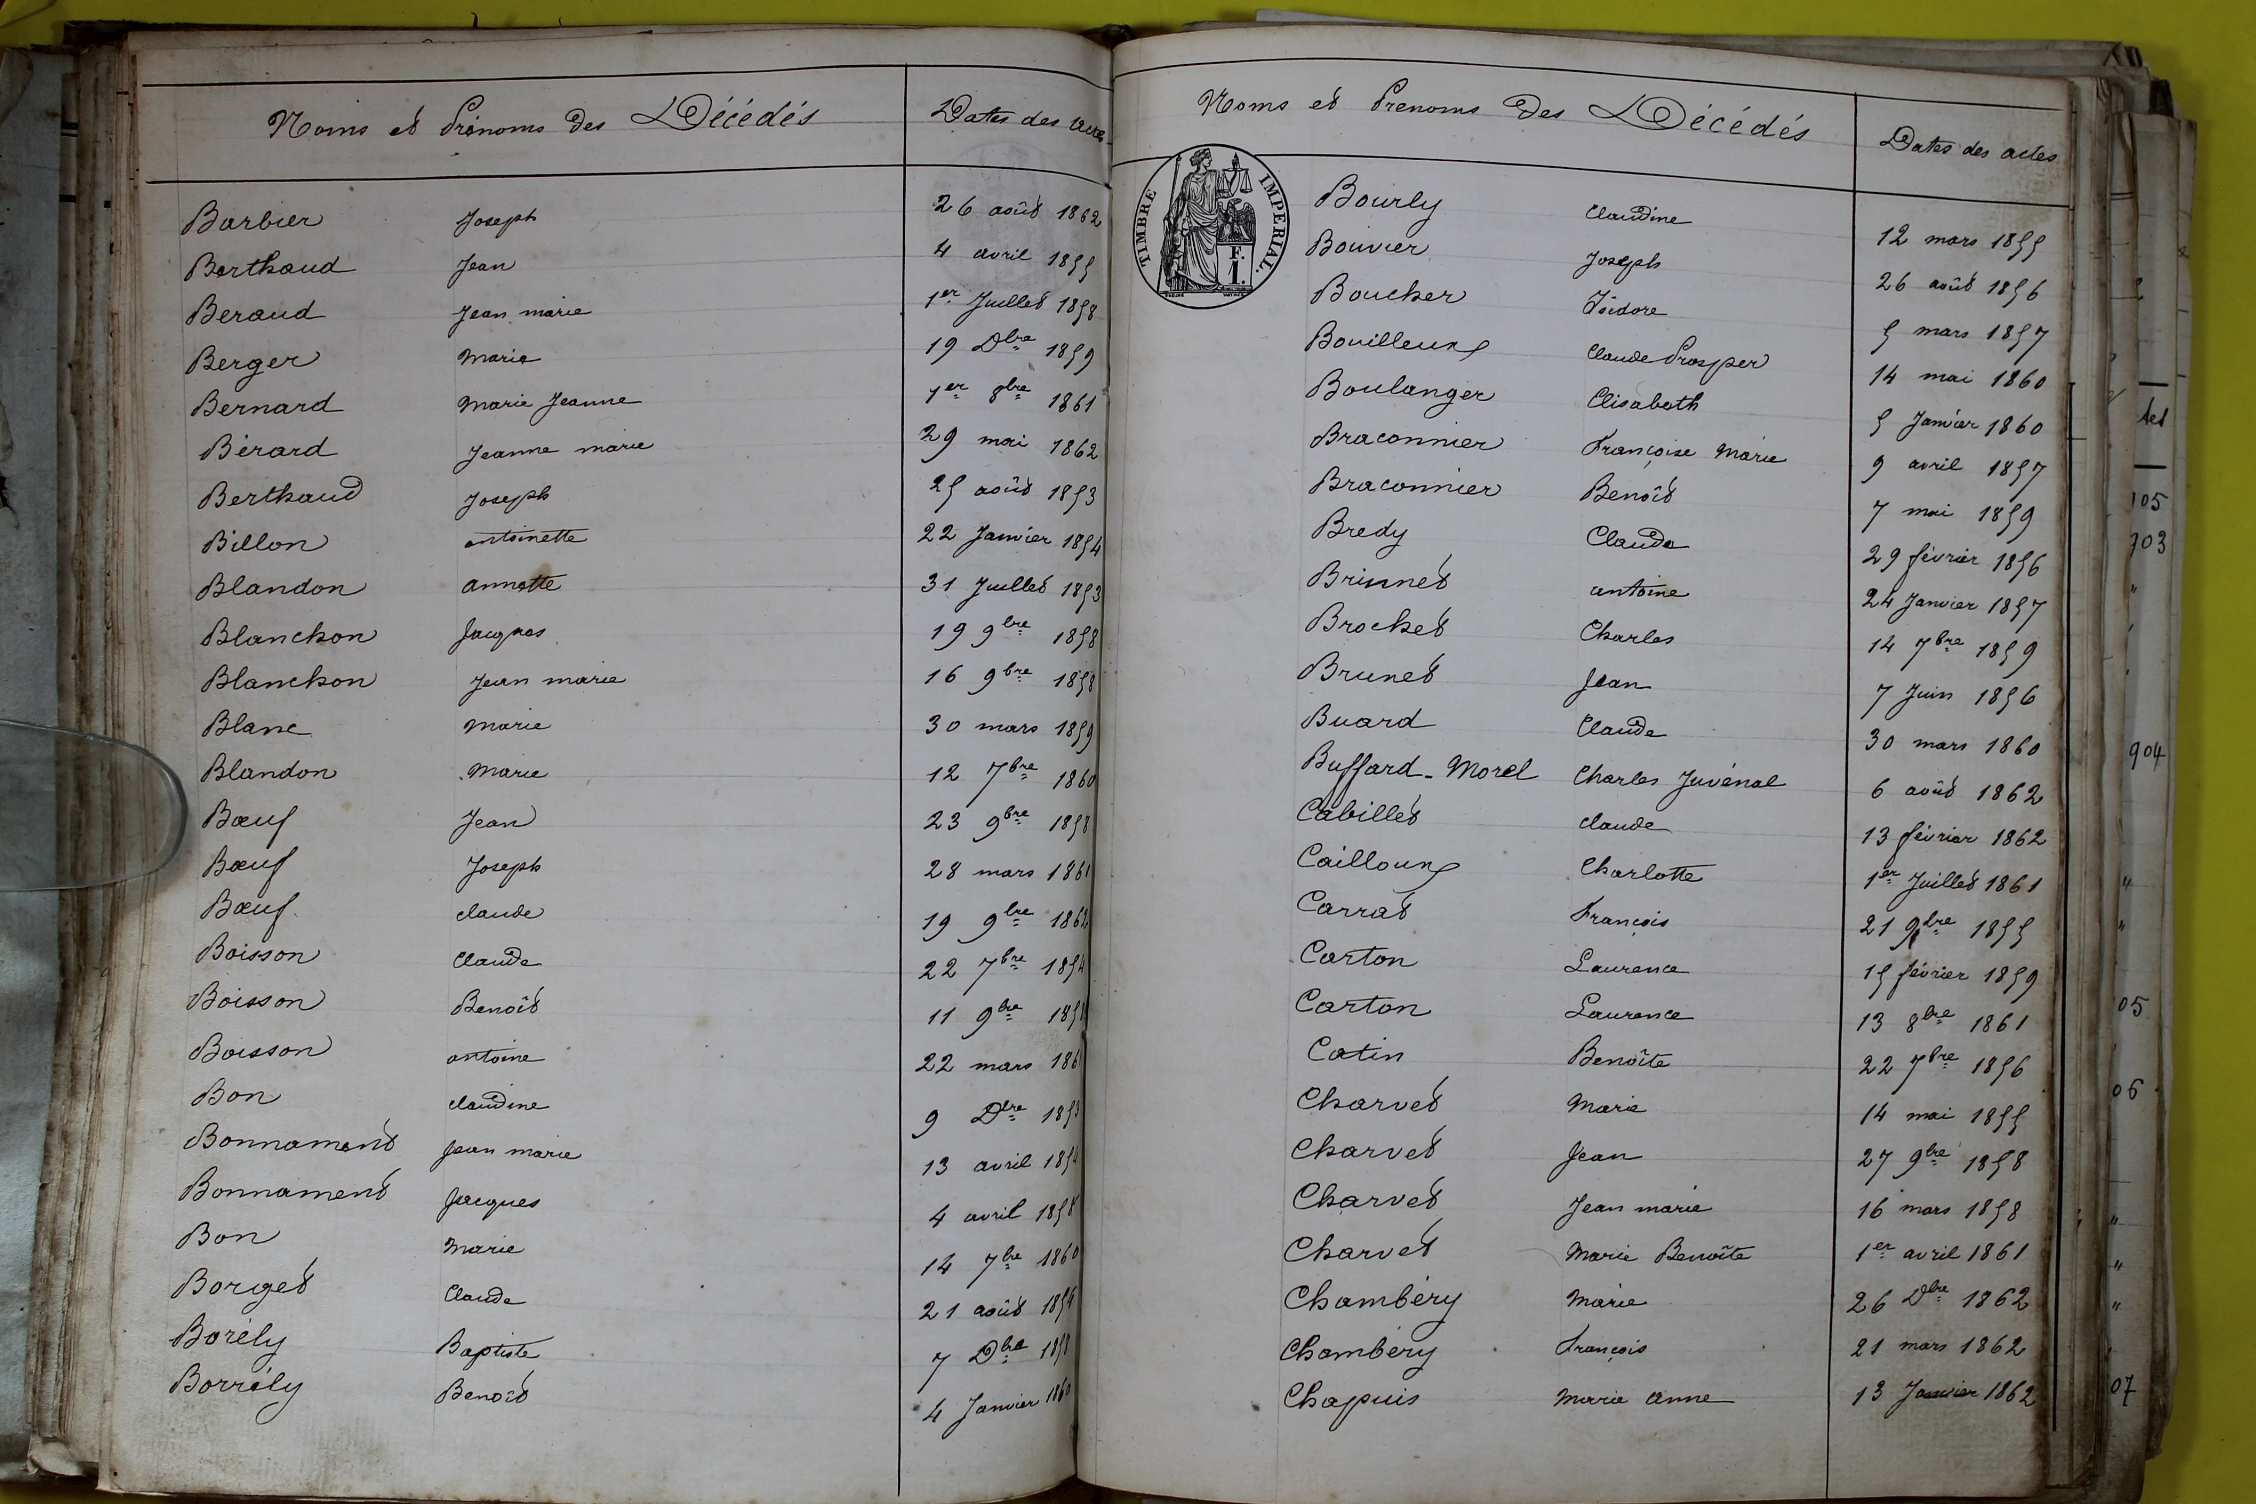 Noms et Prénoms des Décédés Dates des actes
Barbier Joseph 26 août 1862
Berthaud Jean 4 avril 1855
Beraud Jean marie 1er Juillet 1858
Berger Marie 19 Dbre 1859
Bernard Marie Jeanne 1er 8bre 1861
Bérard Jeanne marie 29 mai 1862
Berthaud Joseph 25 août 1853
Billon antoinette 22 Janvier 1854
Blandon annette 31 Juillet 1853
Blanchon Jacques 19 9bre 1858
Blanchon Jean marie 16 9bre 1858
Blanc Marie 30 mars 1859
Blandon Marie 12 7bre 1860
Bœuf Jean 23 9bre 1858
Bœuf Joseph 28 mars 1861
Bœuf claude 19 9bre 1862
Boisson Claude 22 7bre 1854
Boisson Benoît 11 9bre
Boisson antoine 22 mars 186
Bon claudine 9 Dbre 1853
Bonnament Jean marie 13 avril 1854
Bonnament Jacques 4 avril 1858
Bon Marie 14 7bre 1860
Borget Claude 21 août
Borély Baptiste 7 Dbre 1858
Borrély Benoît 4 Janvier 1860
Noms et Prenoms des Décédés Dates des actes
TIMBRE IMPERIAL.
F.
1.
Bourly Claudine 12 mars 1855
Bouvier Joseph 26 août 1856
Boucher Isidore 5 mars 1857
Bouilleux Claude Prosper 14 mai 1860
Boulanger Elisabeth 5 Janvier 1860
Braconnier Françoise Marie 9 avril 1857
Braconnier Benoît 7 mai 1859
Bredy Claude 29 février 1856
Brinnet antoine 24 Janvier 1857
Brochet Charles 14 7bre 1859
Brunet Jean 7 Juin 1856
Buard Claude 30 mars 1860
Buffard-Morel Charles Juvénal 6 août 1862
Cabillet claude 13 février 1862
Cailloux Charlotte 1er Juillet 1861
Carrat François 21 9bre 1855
Carton Laurence 15 février 1859
Carton Laurence 13 8bre 1861
Catin Benoîte 22 7bre 1856
Charvet Marie 14 mai 1855
Charvet Jean 27 9bre 1858
Charvet Jean marie 16 mars 1858
Charvet Marie Benoîte 1er avril 1861
Chambéry Marie 26 Dbre 1862
Chambéry François 21 mars 1862
Chapuis Marie anne 13 Janvier 1862
105
903
"
904
"
"
05
06
"
"
"
07